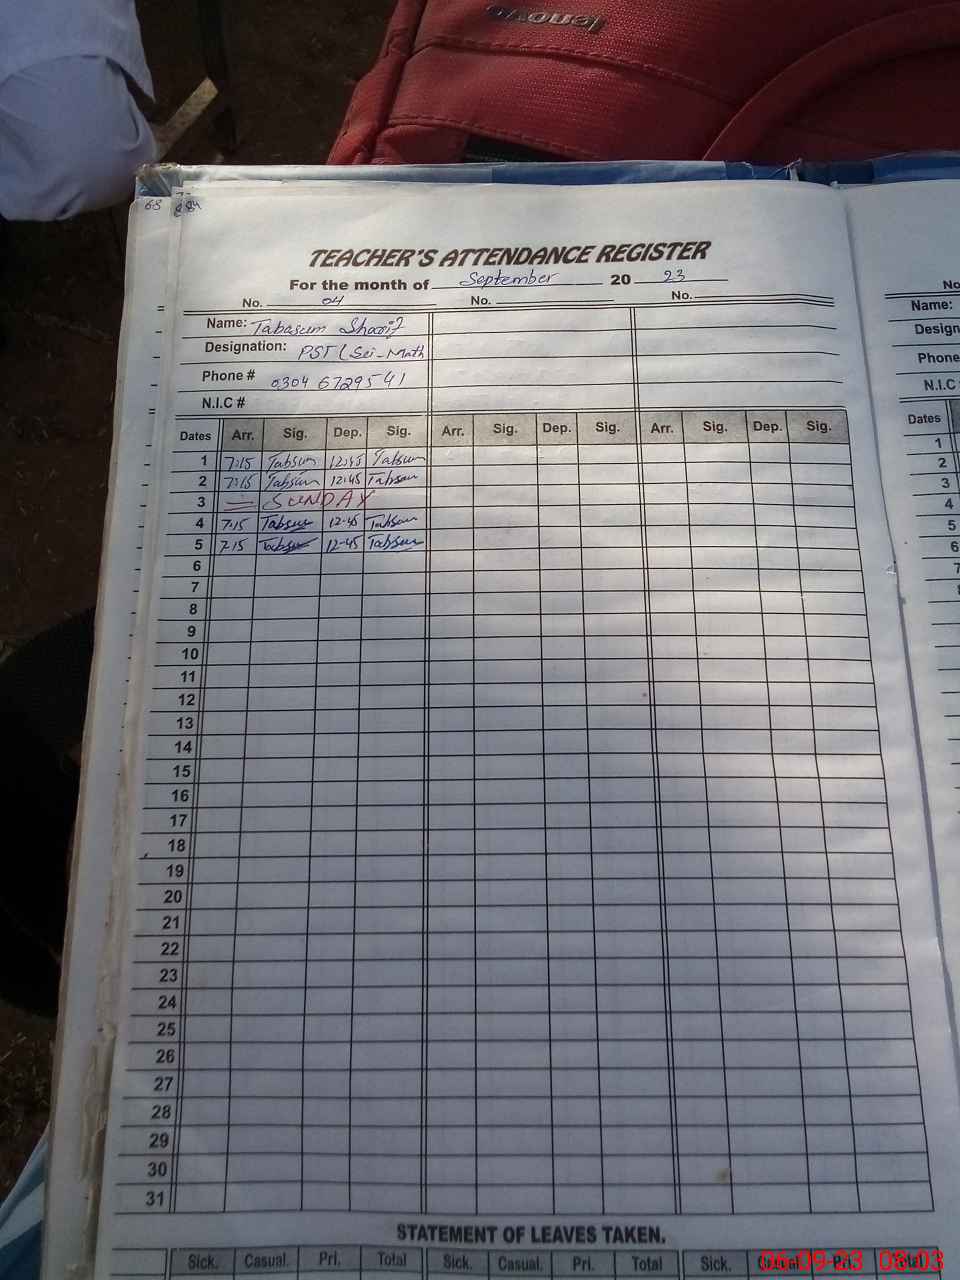 lenovo
68 84
TEACHER'S ATTENDANCE REGISTER
For the month of September 20 23
No. 04 No. No.
Name: Tabasum Sharif
Designation: PST (Sci-Math
Phone # 0304 6729541
N.I.C #
Dates Arr. Sig. Dep. Sig. Arr. Sig. Dep. Sig. Arr. Sig. Dep. Sig.
1 7:15 Tabsum 12:45 Tabsum
2 7:15 Tabsum 12:45 Tabsum
3 = SUNDAY
4 7.15 Tabsum 12-45 Tabsum
5 7.15 Tabsum 12-45 Tabsum
6
7
8
9
10
11
12
13
14
15
16
17
18
19
20
21
22
23
24
25
26
27
28
29
30
31
STATEMENT OF LEAVES TAKEN.
Sick. Casual. Pri. Total Sick. Casual. Pri. Total Sick. Casual. Pri. Total
No
Name:
Design
Phone
N.I.C
Dates
1
2
3
4
5
6
7
06-09-23 08:03